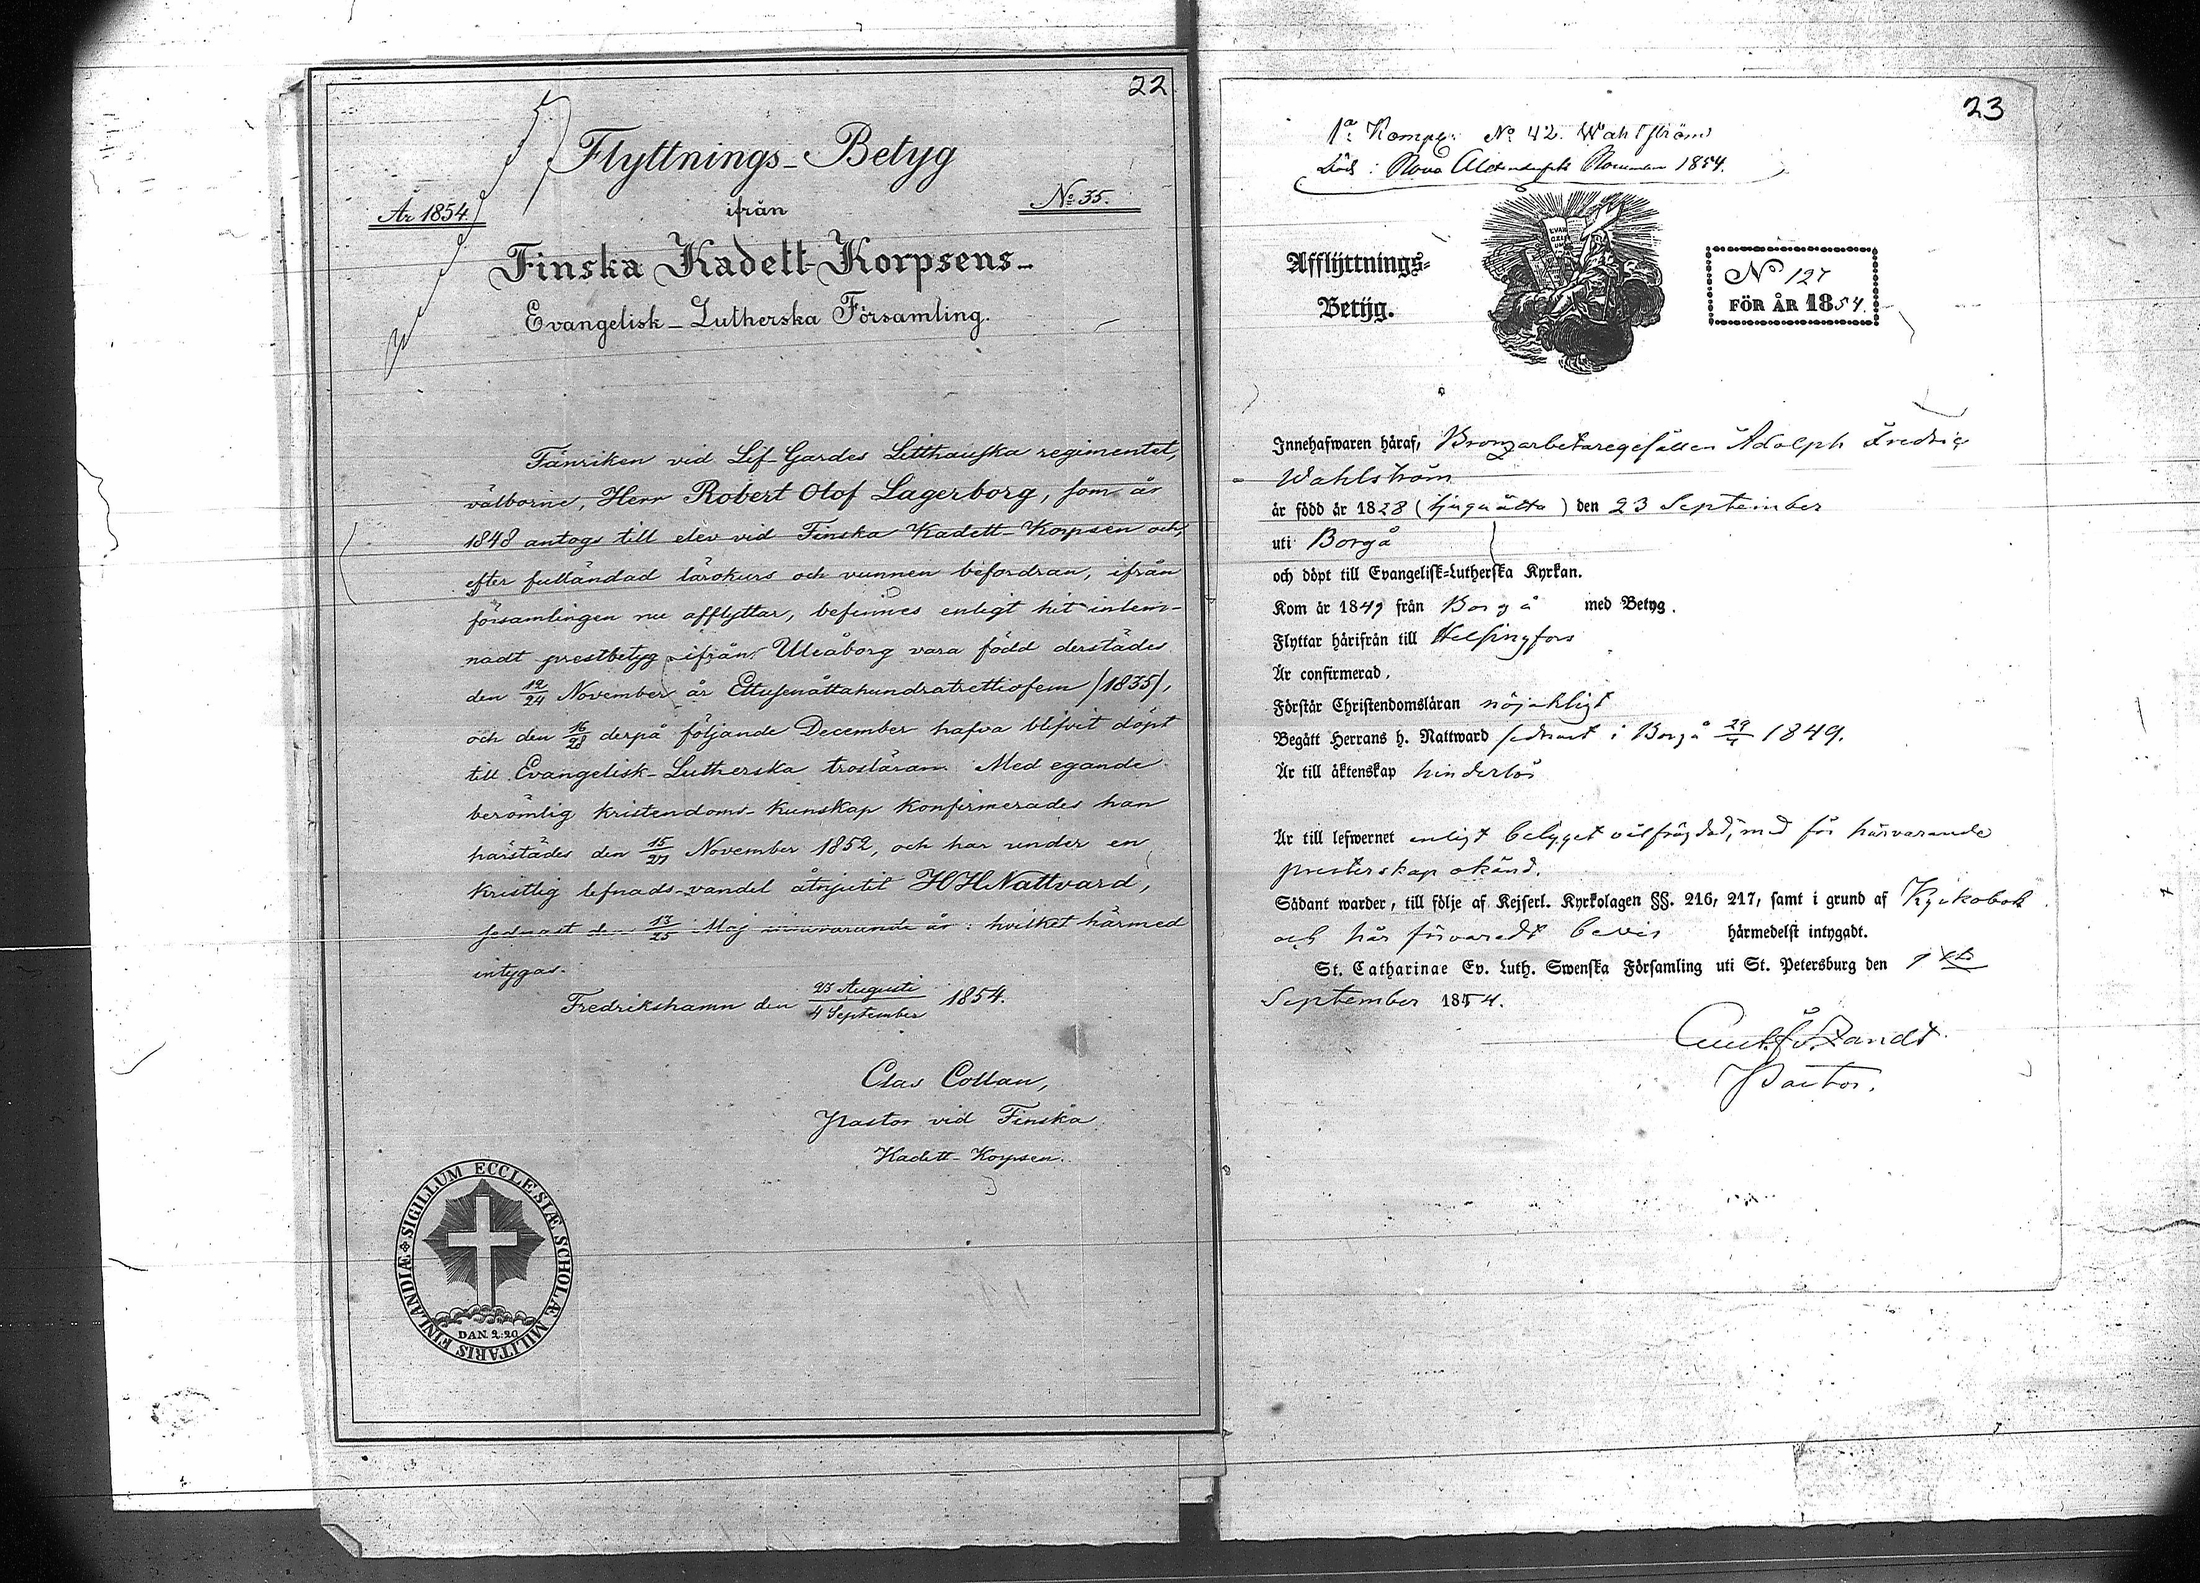 22
Flyttnings-Betyg
År 1854.
ifrån
No 35.
Finska Kadett-Korpsens-
Evangelisk-Lutherska Församling.
Fänriken vid Lif-Gardes Litthauska regimentet,
välborne, Herr Robert Olof Lagerborg, som år
1848 antogs till elev vid Finska Kadett-Korpsen och,
efter fulländad lärokurs och vunnen befordran, ifrån
församlingen nu afflyttar, befinnes enligt hit inlem-
nadt prestbetyg ifrån Uleåborg vara född derstädes
den 12/24 November år Ettusenåttahundratrettiofem /1835/,
och den 16/28 derpå följande December hafva blifvit döpt
till Evangelisk-Lutherska trosläran. Med egande
berömlig kristendoms-kunskap konfirmerades han
härstädes den 15/27 November 1852, och har under en
kristlig lefnads-vandel åtnjutit H H Nattvard,
sednast den 13/25 Maj innevarande år: hvilket härmed
intygas.
Fredrikshamn den 23 Augusti/4 September 1854.
Clas Collan,
Pastor vid Finska
Kadett-Korpsen.
SIGILLUM ECCLESIÆ SCHOLÆ MILITARIS FINLANDIÆ
DAN. 2:20
23
1a Komp: No 42. Wahlström
Död i Nova November 1854.
Afflyttnings-
Betyg.
EVAN
GELI
UM
No 127
FÖR ÅR 1854.
Innehafwaren häraf, Bronzarbetaregesällen Adolph Fredric
Wahlström
är född år 1828 (tjuguåtta) den 23 September
uti Borgå
och döpt till Evangelisk-Lutherska Kyrkan.
Kom år 1849 från Borgå med Betyg.
Flyttar härifrån till Helsingfors
Är confirmerad.
Förstår Christendomsläran nöjaktigt
Begått Herrans h. Nattward sednast i Borgå 1849.
Är till äktenskap hinderlös
Är till lefwernet enligt betyget välfrägdad, men för härvarande
presterskap okänd.
Sådant warder, till följe af Kejserl. Kyrkolagen §§. 216, 217, samt i grund af Kyrkobok
och här förvaradt bevis härmedelst intygadt.
St. Catharinae Ev. Luth. Swenska Församling uti St. Petersburg den
September 1854.
Pastor.